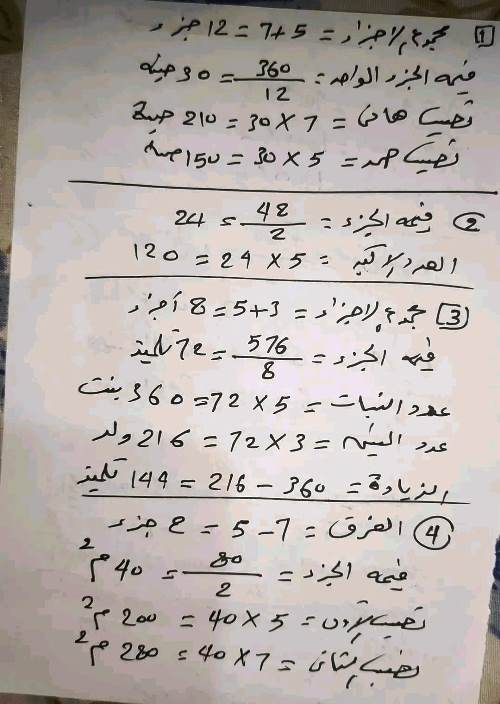 1 مجموع الاجزاء = 5+7 = 12 جزء
قيمه الجزء الواحد = 360/12 = 30 جنيه
نصيب هانى = 7 × 30 = 210 جنية
نصيب حمد = 5 × 30 = 150 جنيه
2 قيمه الجزء = 48/2 = 24
العدد الاكبر = 5 × 24 = 120
3 مجموع الاجزاء = 3+5 = 8 أجزاء
قيمه الجزء = 576/8 = 72 تلميذ
عدد البنات = 5 × 72 = 360 بنت
عدد البنين = 3 × 72 = 216 ولد
الزيادة = 360 – 216 = 144 تلميذ
4 الفرق = 7 – 5 = 2 جزء
قيمه الجزء = 80/2 = 40 م2
نصيب الاول = 5 × 40 = 200 م2
نصيب الثانى = 7 × 40 = 280 م2